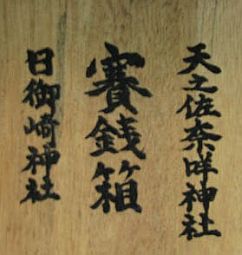 天之佐奈咩神社
賽銭箱
日御崎神社